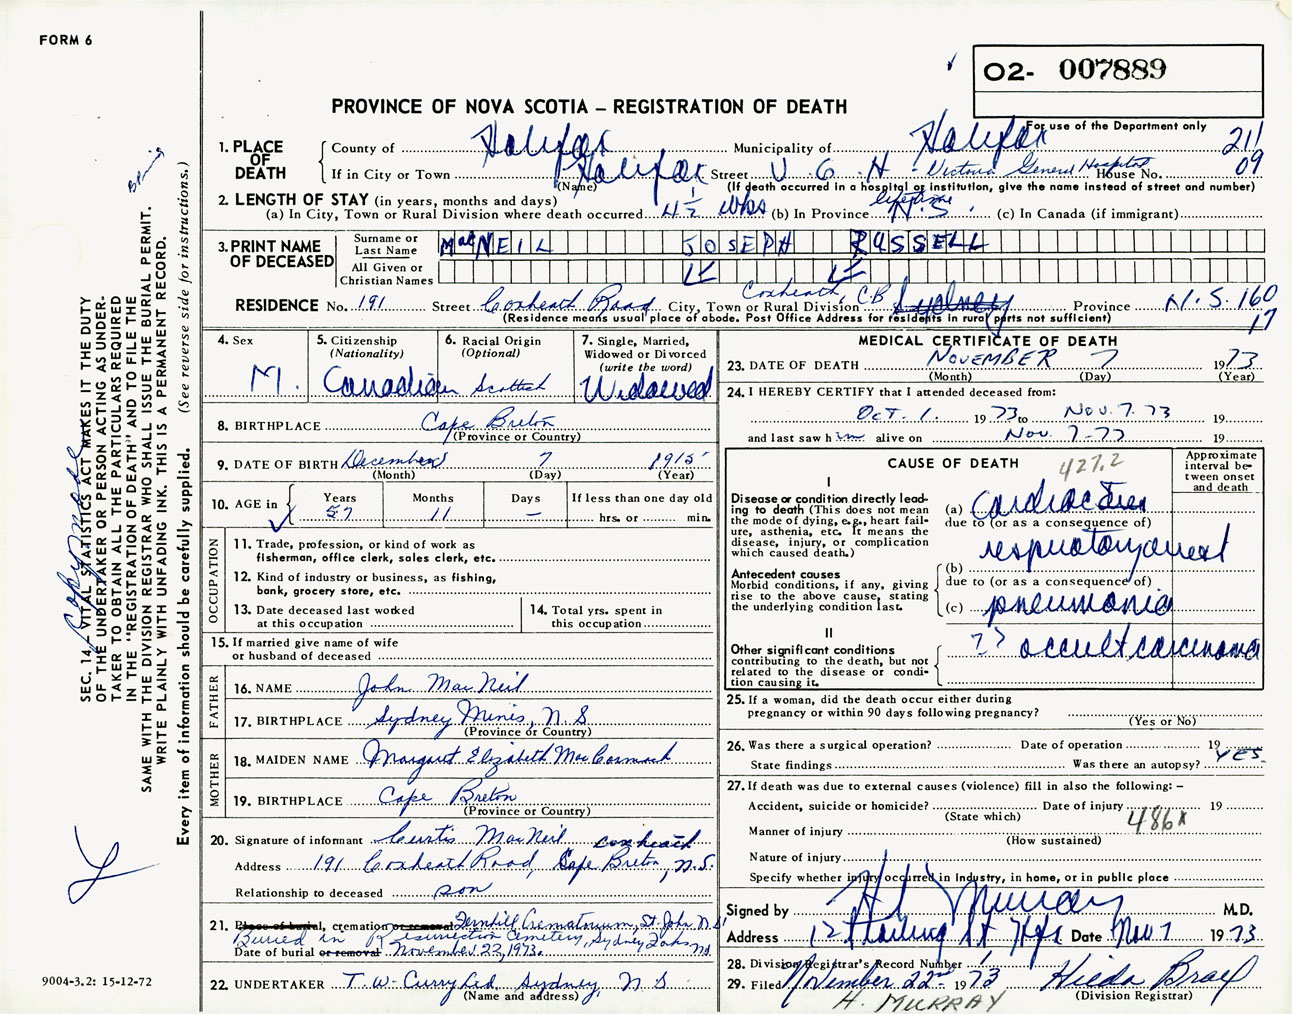 FORM 6
O2- 007889
PROVINCE OF NOVA SCOTIA – REGISTRATION OF DEATH
For use of the Department only
1. PLACE OF DEATH
County of Halifax Municipality of Halifax 211
If in City or Town Halifax Street V. G. H. - Victoria General Hospital House No. 09
(Name) (If death occurred in a hospital or institution, give the name instead of street and number)
2. LENGTH OF STAY (in years, months and days)
(a) In City, Town or Rural Division where death occurred 4½ wks (b) In Province lifetime N.S. (c) In Canada (if immigrant)
3. PRINT NAME OF DECEASED
Surname or Last Name MacNEIL JOSEPH RUSSELL
All Given or Christian Names
RESIDENCE No. 191 Street Coxheath Road City, Town or Rural Division Coxheath, C.B. Sydney Province N.S. 160
(Residence means usual place of abode. Post Office Address for residents in rural parts not sufficient) 17
4. Sex M.
5. Citizenship (Nationality) Canadian
6. Racial Origin (Optional) Scottish
7. Single, Married, Widowed or Divorced (write the word) Widowed
8. BIRTHPLACE Cape Breton
(Province or Country)
9. DATE OF BIRTH December 7 1915
(Month) (Day) (Year)
10. AGE in Years 57 Months 11 Days – If less than one day old hrs. or min.
OCCUPATION
11. Trade, profession, or kind of work as fisherman, office clerk, sales clerk, etc.
12. Kind of industry or business, as fishing, bank, grocery store, etc.
13. Date deceased last worked at this occupation
14. Total yrs. spent in this occupation
15. If married give name of wife or husband of deceased
FATHER
16. NAME John MacNeil
17. BIRTHPLACE Sydney Mines, N.S
(Province or Country)
MOTHER
18. MAIDEN NAME Margaret Elizabeth MacCormack
19. BIRTHPLACE Cape Breton
(Province or Country)
20. Signature of informant Curtis MacNeil coxheath
Address 191 Coxheath Road, Cape Breton, N.S.
Relationship to deceased son
21. Place of burial, cremation or removal Fernhill Crematorium, St. John, N.B.
Buried in Resurrection Cemetery, Sydney
Date of burial or removal November 22, 1973.
22. UNDERTAKER T. W. Curry Ltd Sydney, N.S.
(Name and address)
MEDICAL CERTIFICATE OF DEATH
23. DATE OF DEATH NOVEMBER 7 1973
(Month) (Day) (Year)
24. I HEREBY CERTIFY that I attended deceased from:
Oct. 1. 1973 to Nov. 7. 73 19
and last saw him alive on Nov. 7-73 19
CAUSE OF DEATH 427.2
Approximate interval between onset and death
I
Disease or condition directly leading to death (This does not mean the mode of dying, e.g., heart failure, asthenia, etc. It means the disease, injury, or complication which caused death.)
(a) Cardiac
due to (or as a consequence of)
respiratory arrest
Antecedent causes
Morbid conditions, if any, giving rise to the above cause, stating the underlying condition last.
(b)
due to (or as a consequence of)
(c) pneumonia
II
Other significant conditions contributing to the death, but not related to the disease or condition causing it.
?? occult carcinoma
25. If a woman, did the death occur either during pregnancy or within 90 days following pregnancy?
(Yes or No)
26. Was there a surgical operation? Date of operation 19
State findings Was there an autopsy? YES.
27. If death was due to external causes (violence) fill in also the following: –
Accident, suicide or homicide? Date of injury 19
(State which) 486x
Manner of injury
(How sustained)
Nature of injury
Specify whether injury occurred in Industry, in home, or in public place
Signed by H Murray M.D.
Address St Hfx Date Nov 7 1973
28. Division Registrar's Record Number
29. Filed November 22nd 1973 Hilda
(Division Registrar)
H. MURRAY
SEC. 14 – VITAL STATISTICS ACT MAKES IT THE DUTY
OF THE UNDERTAKER OR PERSON ACTING AS UNDER-
TAKER TO OBTAIN ALL THE PARTICULARS REQUIRED
IN THE "REGISTRATION OF DEATH" AND TO FILE THE
SAME WITH THE DIVISION REGISTRAR WHO SHALL ISSUE THE BURIAL PERMIT.
WRITE PLAINLY WITH UNFADING INK. THIS IS A PERMANENT RECORD.
Every item of information should be carefully supplied. (See reverse side for instructions.)
Copy made
9004-3.2: 15-12-72